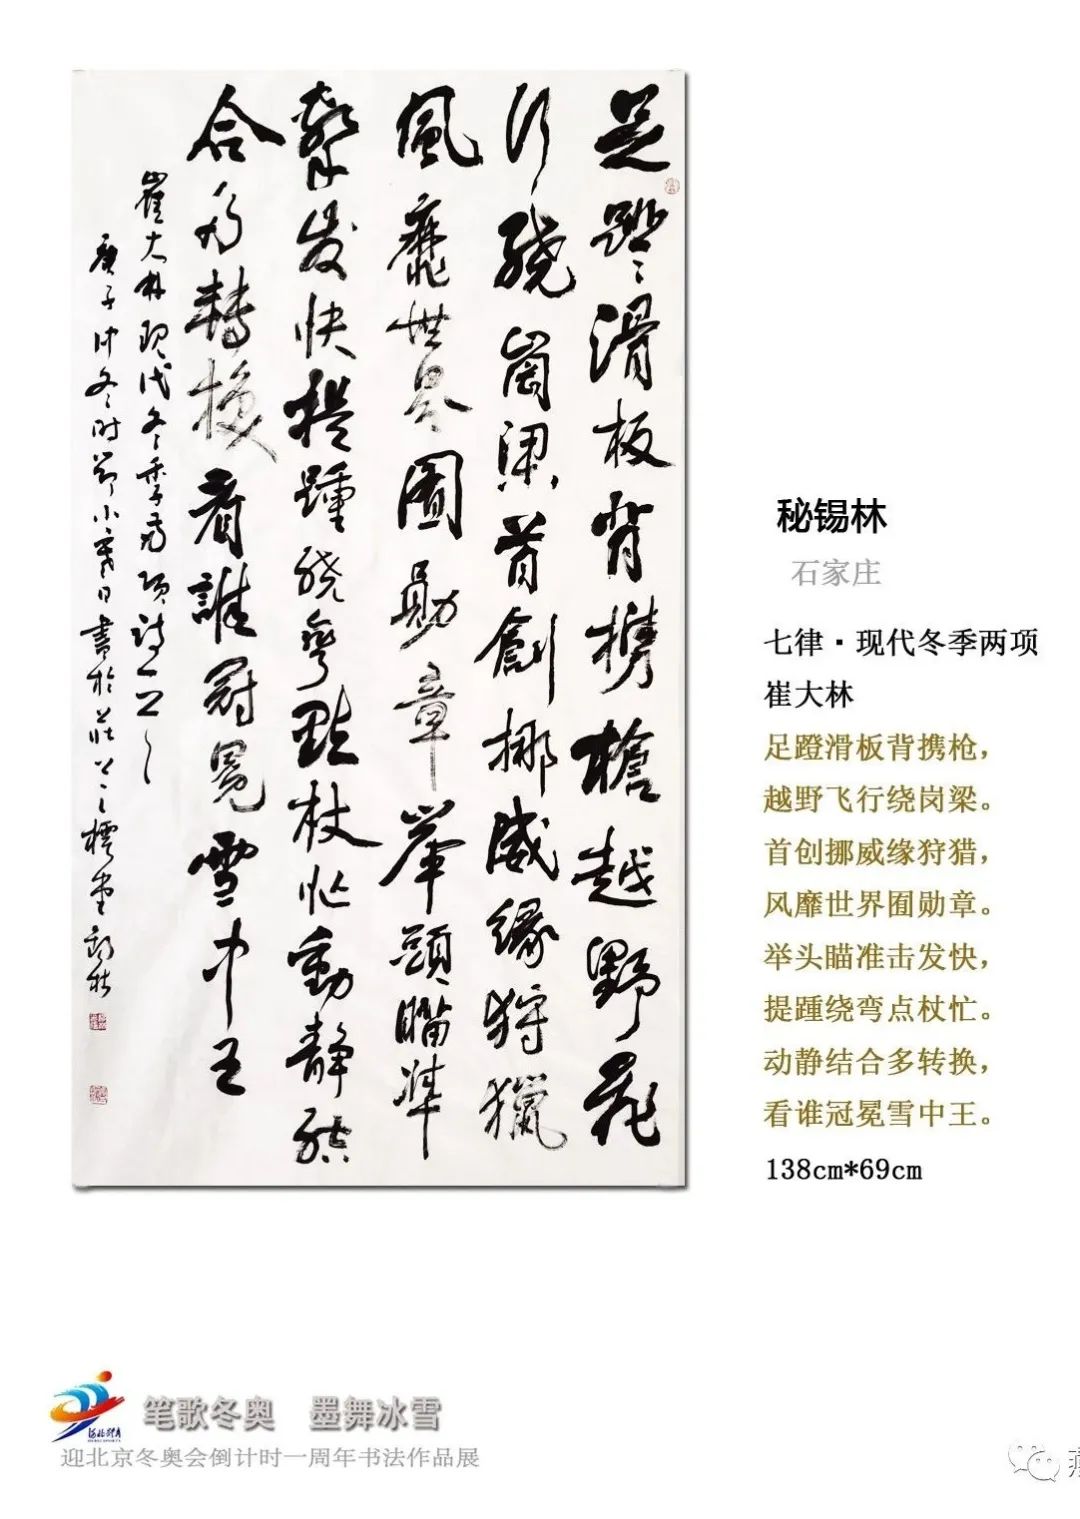 足蹬滑板背携槍越野飛
行绕崗梁首創挪威缘狩獵
風靡世界囿勛章舉頭瞄準
擊发快提踵绕弯點杖忙動静結
合多轉换看誰冠冕雪中王
崔大林现代冬季两项诗一首
庚子仲冬时节小寒日書於
秘锡林
石家庄
七律·现代冬季两项
崔大林
足蹬滑板背携枪，
越野飞行绕岗梁。
首创挪威缘狩猎，
风靡世界囿勋章。
举头瞄准击发快，
提踵绕弯点杖忙。
动静结合多转换，
看谁冠冕雪中王。
138cm*69cm
河北体育
笔歌冬奥 墨舞冰雪
迎北京冬奥会倒计时一周年书法作品展